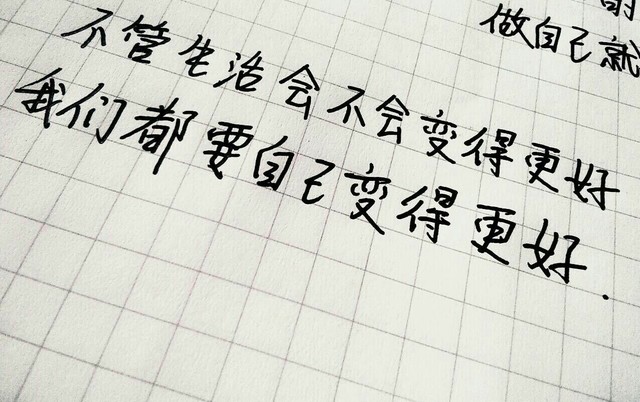 的
做自己就
不管生活会不会变得更好
我们都要自己变得更好.